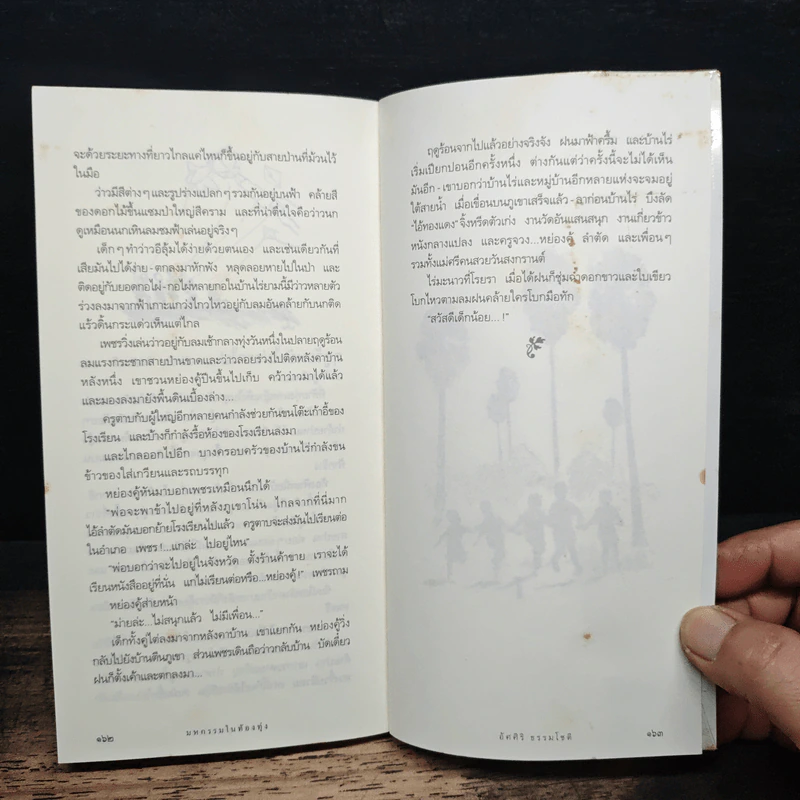 จะด้วยระยะทางที่ยาวไกลแค่ไหนก็ขึ้นอยู่กับสายป่านที่ม้วนไว้
ในมือ
ว่าวมีสีต่างๆและรูปร่างแปลกๆรวมกันอยู่บนฟ้า คล้ายสี
ของดอกไม้ขึ้นแซมป่าใหญ่สีคราม และที่น่าตื่นใจคือว่าวนก
ดูเหมือนนกเหินลมชมฟ้าเล่นอยู่จริงๆ
เด็กๆทำว่าวอีลุ้มได้ง่ายด้วยตนเอง และเช่นเดียวกันที่
เสียมันไปได้ง่าย-ตกลงมาหักพัง หลุดลอยหายไปในป่า และ
ติดอยู่กับยอดกอไผ่-กอไผ่หลายกอในบ้านไร่ยามนี้มีว่าวหลายตัว
ร่วงลงมาจากฟ้าเกาะแกว่งไกวไหวอยู่กับลมอันคล้ายกับนกติด
แร้วดิ้นกระแด่วเห็นแต่ไกล
เพชรวิ่งเล่นว่าวอยู่กับลมเช้ากลางทุ่งวันหนึ่งในปลายฤดูร้อน
ลมแรงกระชากสายป่านขาดและว่าวลอยร่วงไปติดหลังคาบ้าน
หลังหนึ่ง เขาชวนหย่องคู้ปีนขึ้นไปเก็บ คว้าว่าวมาได้แล้ว
และมองลงมายังพื้นดินเบื้องล่าง...
ครูตาบกับผู้ใหญ่อีกหลายคนกำลังช่วยกันขนโต๊ะเก้าอี้ของ
โรงเรียน และบ้างก็กำลังรื้อห้องของโรงเรียนลงมา
และไกลออกไปอีก บางครอบครัวของบ้านไร่กำลังขน
ข้าวของใส่เกวียนและรถบรรทุก
หย่องคู้หันมาบอกเพชรเหมือนนึกได้
"พ่อจะพาข้าไปอยู่ที่หลังภูเขาโน่น ไกลจากที่นี่มาก
ไอ้ลำตัดมันบอกย้ายโรงเรียนไปแล้ว ครูตาบจะส่งมันไปเรียนต่อ
ในอำเภอ เพชร!...แกล่ะ ไปอยู่ไหน"
"พ่อบอกว่าจะไปอยู่ในจังหวัด ตั้งร้านค้าขาย เราจะได้
เรียนหนังสืออยู่ที่นั่น แกไม่เรียนต่อหรือ...หย่องคู้!" เพชรถาม
หย่องคู้ส่ายหน้า
"ม่ายล่ะ...ไม่สนุกแล้ว ไม่มีเพื่อน..."
เด็กทั้งคู่ไต่ลงมาจากหลังคาบ้าน เขาแยกกัน หย่องคู้วิ่ง
กลับไปยังบ้านตีนภูเขา ส่วนเพชรเดินถือว่าวกลับบ้าน บัดเดี๋ยว
ฝนก็ตั้งเค้าและตกลงมา...
๑๖๒
มหกรรมในท้องทุ่ง
ฤดูร้อนจากไปแล้วอย่างจริงจัง ฝนมาฟ้าครึ้ม และบ้านไร่
เริ่มเปียกปอนอีกครั้งหนึ่ง ต่างกันแต่ว่าครั้งนี้จะไม่ได้เห็น
มันอีก-เขาบอกว่าบ้านไร่และหมู่บ้านอีกหลายแห่งจะจมอยู่
ใต้สายน้ำ เมื่อเขื่อนบนภูเขาเสร็จแล้ว-ลาก่อนบ้านไร่ บึงลัด
"ไอ้ทองแดง" จิ้งหรีดตัวเก่ง งานวัดอันแสนสนุก งานเกี่ยวข้าว
หนังกลางแปลง และครูจวง...หย่องคู้ ลำตัด และเพื่อนๆ
รวมทั้งแม่ศรีคนสวยวันสงกรานต์
ไร่มะนาวที่โรยรา เมื่อได้ฝนก็ชุ่มฉ่ำดอกขาวและใบเขียว
โบกไหวตามลมฝนคล้ายใครโบกมือทัก
"สวัสดีเด็กน้อย...!"
อัศศิริ ธรรมโชติ
๑๖๓